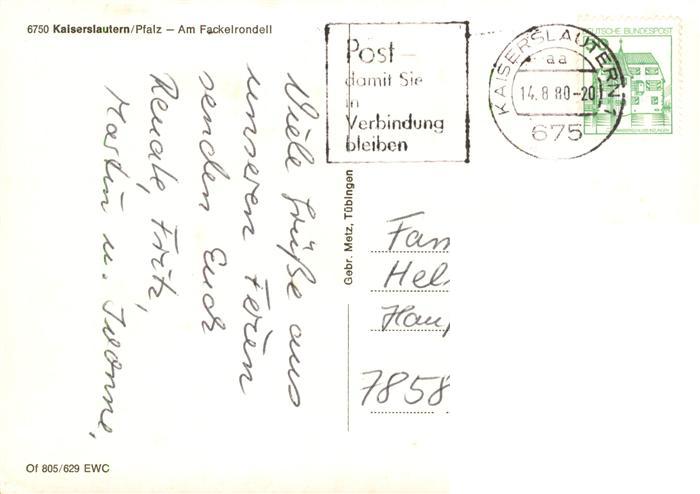 6750 Kaiserslautern/Pfalz — Am Fackelrondell
Viele Grüße aus
unseren Ferien
senden Euch
Renate, Fritz,
Martin u. Ivonne,
Of 805/629 EWC
Gebr. Metz, Tübingen
Post —
damit Sie
in
Verbindung
bleiben
KAISERSLAUTERN 1
aa
14.8.80-20
675
DEUTSCHE BUNDESPOST
Fam
Hel
Haup
7858